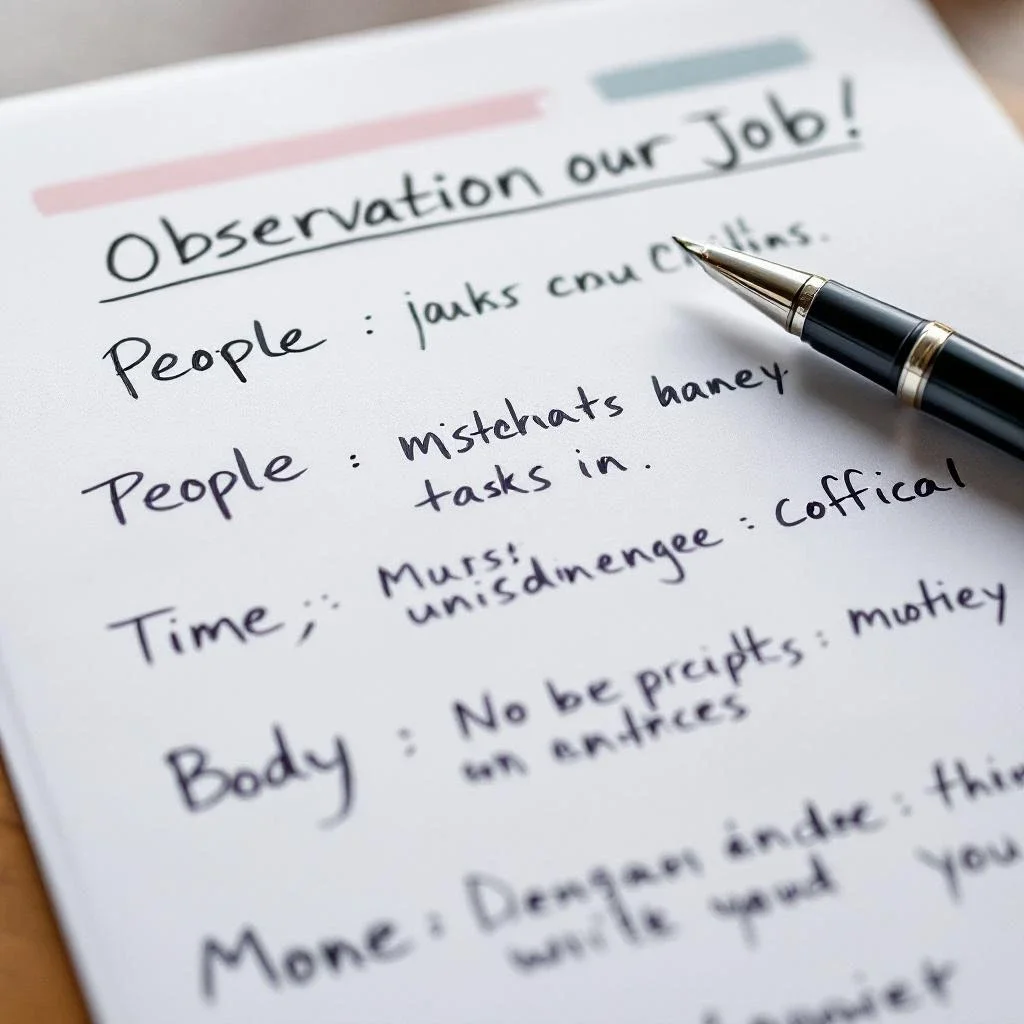 Observation our Job!
People : jauks cnu
People : mistchats haney
tasks in.
Time ;: Murs:
unisdinengee : Coffical
Body : No be preipts : muotiey
on entrices
Mone : Dengan éndre : thin
write you